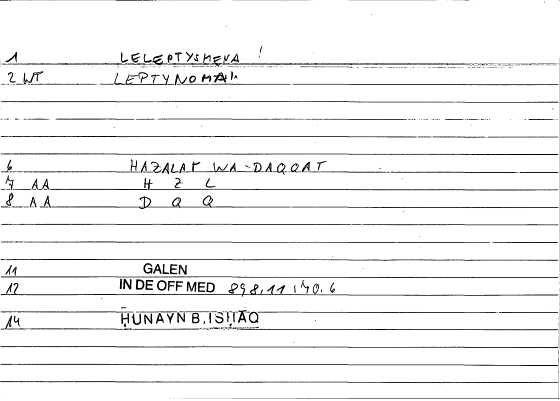 1 LELEPTYSMENA !
2 WT LEPTYNOMAI
6 HAZALAT WA-DAQQAT
7 AA H Z L
8 AA D Q Q
11 GALEN
12 IN DE OFF MED 898.11;70.6
14 ḤUNAYN B.ISḤĀQ